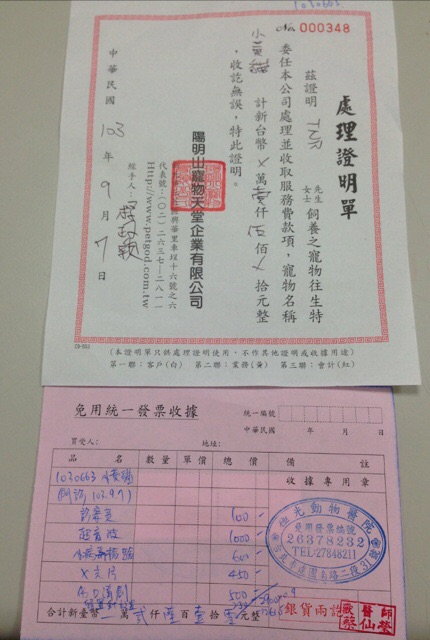 1030663
No 000348
處理證明單
茲證明 TNR 先生 女士 飼養之寵物往生特
委任本公司處理並收取服務費款項，寵物名稱
小黃 計新台幣 X 萬壹仟伍佰 X 拾元整
，收訖無誤，特此證明。
陽明山寵物天堂企業有限公司
興華里車埕十六號之六
代表號：(〇二)二六三七-二八一一
Http://www.petgod.com.tw
經手人：
中華民國 103 年 9 月 7 日
(本證明單只供處理證明使用，不作其他證明或收據用途)
第一聯：客戶(白) 第二聯：業務(黃) 第三聯：會計(紅)
免用統一發票收據
統一編號
中華民國 年 月 日
買受人： 地址：
品名 數量 單價 總價 備註
收據專用章
1030663
103.9.7)
100
超音波 1000
600
X光片 450
500
動物醫院
免用發票編號
26378232
TEL:27848211
合計新臺幣 萬貳仟 佰壹拾 元整
銀貨兩訖
獸醫師